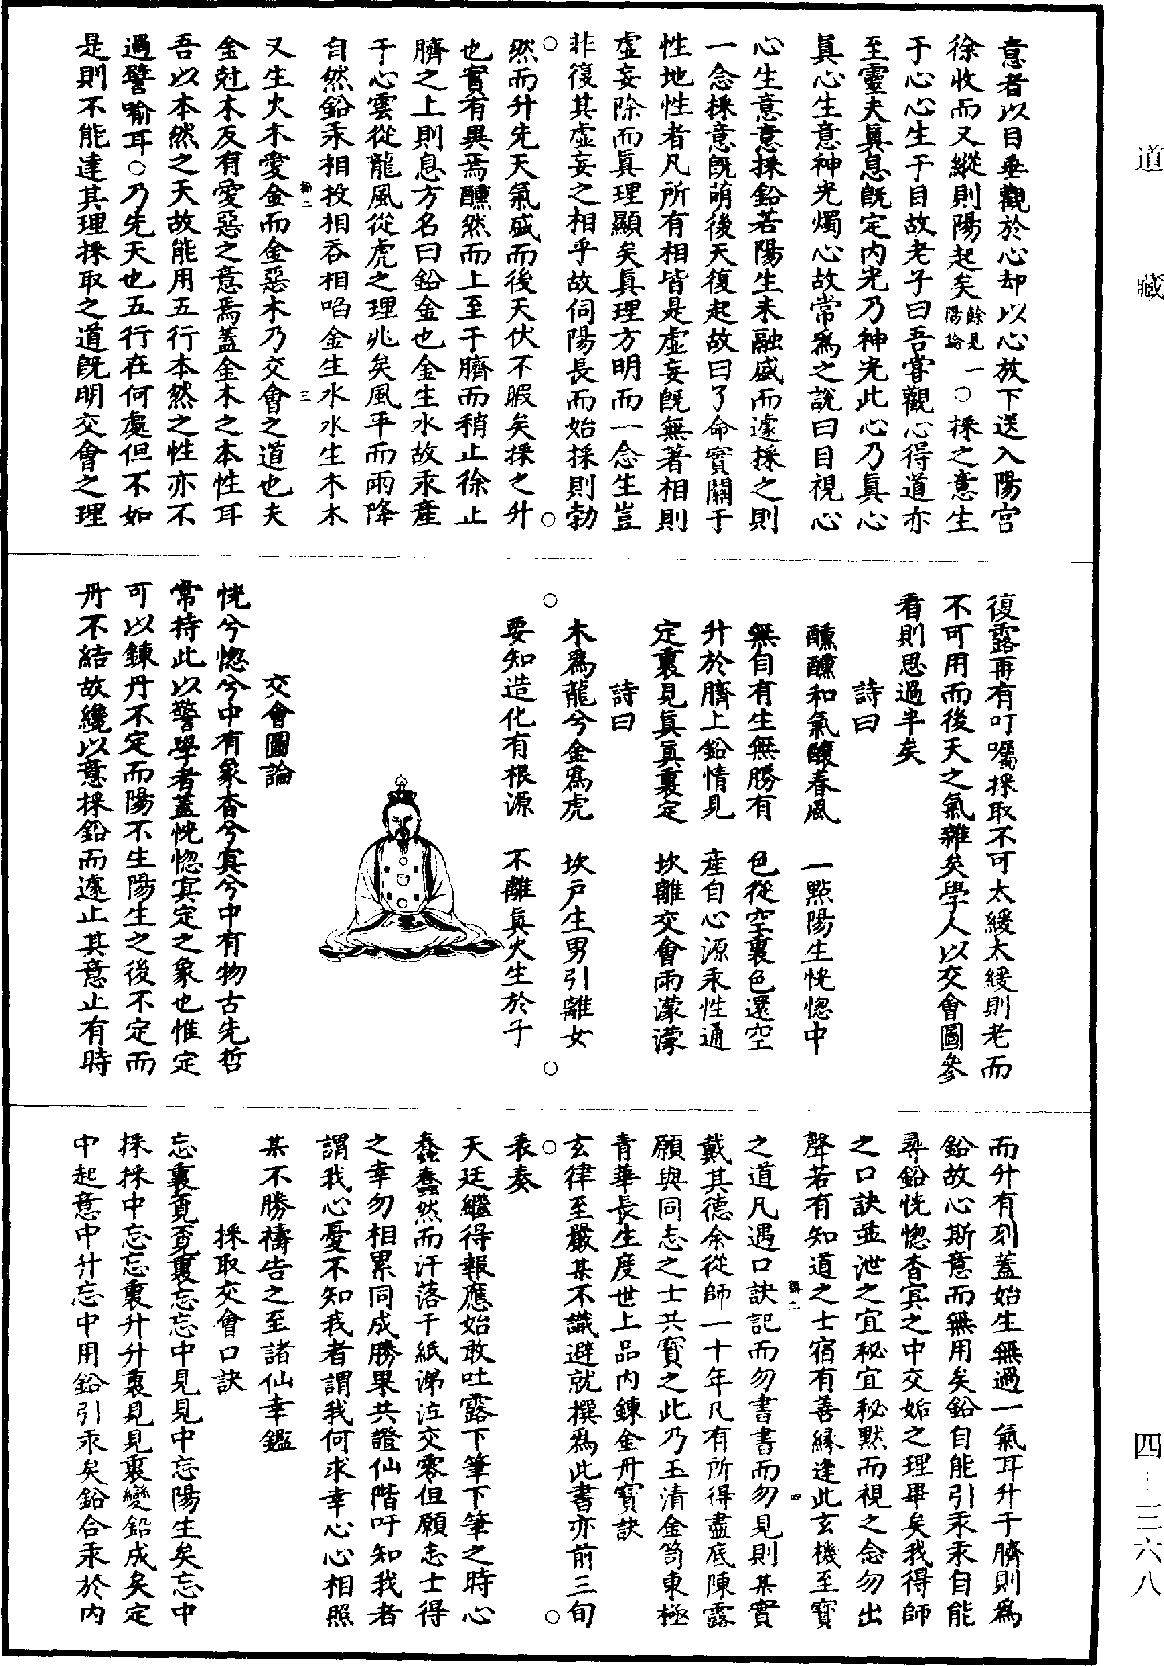 道藏
四—三六八
意者以目垂觀於心却以心放下送入陽宮
徐收而又縱則陽起矣餘見陽論一○採之意生
于心心生于目故老子曰吾嘗觀心得道亦
至靈夫眞息旣定内光乃神光此心乃眞心
眞心生意神光燭心故常爲之說曰目視心
心生意意採鉛若陽生未融盛而遽採之則
一念採意旣萌後天復起故曰了命實關于
性地性者凡所有相皆是虛妄旣無著相則
虛妄除而眞理顯矣眞理方明而一念生豈
非復其虛妄之相乎故伺陽長而始採則勃
然而升先天氣盛而後天伏不暇矣採之升
也實有異焉醺然而上至于臍而稍止徐止
臍之上則息方名曰鉛金也金生水故汞產
于心雲從龍風從虎之理兆矣風平而雨降
自然鉛汞相投相吞相啗金生水水生木木
又生火木愛金而金惡木乃交會之道也夫
金尅木反有愛惡之意焉蓋金木之本性耳
吾以本然之天故能用五行本然之性亦不
過譬喻耳○乃先天也五行在何處但不如
是則不能達其理採取之道旣明交會之理
復露再有叮囑採取不可太緩太緩則老而
不可用而後天之氣雜矣學人以交會圖參
看則思過半矣
詩曰
醺醺和氣馥春風 一點陽生恍惚中
無自有生無勝有 色從空裏色還空
升於臍上鉛情見 產自心源汞性通
定裏見眞眞裏定 坎離交會雨濛濛
詩曰
木爲龍兮金爲虎 坎戶生男引離女
要知造化有根源 不離眞火生於子
交會圖論
恍兮惚兮中有象杳兮冥兮中有物古先哲
常持此以警學者蓋恍惚冥定之象也惟定
可以鍊丹不定而陽不生陽生之後不定而
丹不結故纔以意採鉛而遽止其意止有時
而升有刻蓋始生無過一氣耳升于臍則爲
鉛故心斯意而無用矣鉛自能引汞汞自能
尋鉛恍惚杳冥之中交姤之理畢矣我得師
之口訣並泄之宜秘宜秘默而視之念勿出
聲若有知道之士宿有善緣逢此玄機至寶
之道凡遇口訣記而勿書書而勿見則某實
戴其德余從師一十年凡有所得盡底陳露
願與同志之士共寶之此乃玉清金笥東極
青華長生度世上品内鍊金丹寶訣
玄律至嚴某不識避就撰爲此書亦前三旬
表奏
天廷繼得報應始敢吐露下筆下筆之時心
蠢蠢然而汗落于紙涕泣交零但願志士得
之幸勿相累同成勝果共證仙階吁知我者
謂我心憂不知我者謂我何求幸心心相照
某不勝禱告之至諸仙幸鑑
採取交會口訣
忘裏覓覓裏忘忘中見見中忘陽生矣忘中
採採中忘忘裏升升裏見見裏變鉛成矣定
中起意中升忘中用鉛引汞矣鉛合汞於内